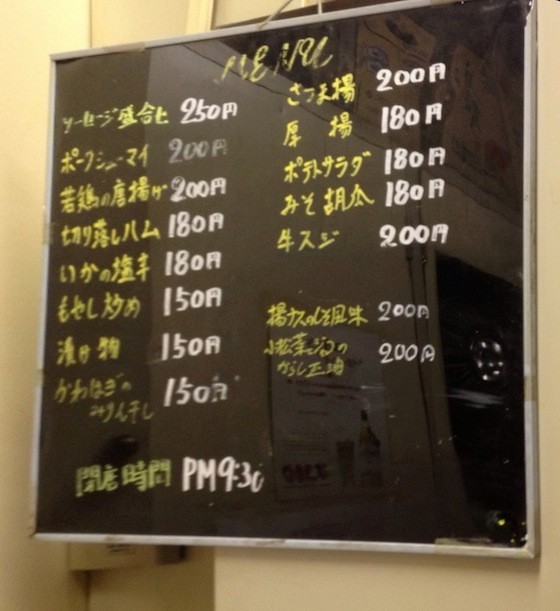 MENU
ソーセージ盛合せ 250円
ポークシューマイ 200円
若鶏の唐揚げ 200円
切り落しハム 180円
いかの塩辛 180円
もやし炒め 150円
漬け物 150円
かわはぎの
みりん干し 150円
閉店時間 PM9:30
さつま揚 200円
厚揚 180円
ポテトサラダ 180円
みそ胡瓜 180円
牛スジ 200円
揚ナスのしそ風味 200円
小松菜
からし正油 200円